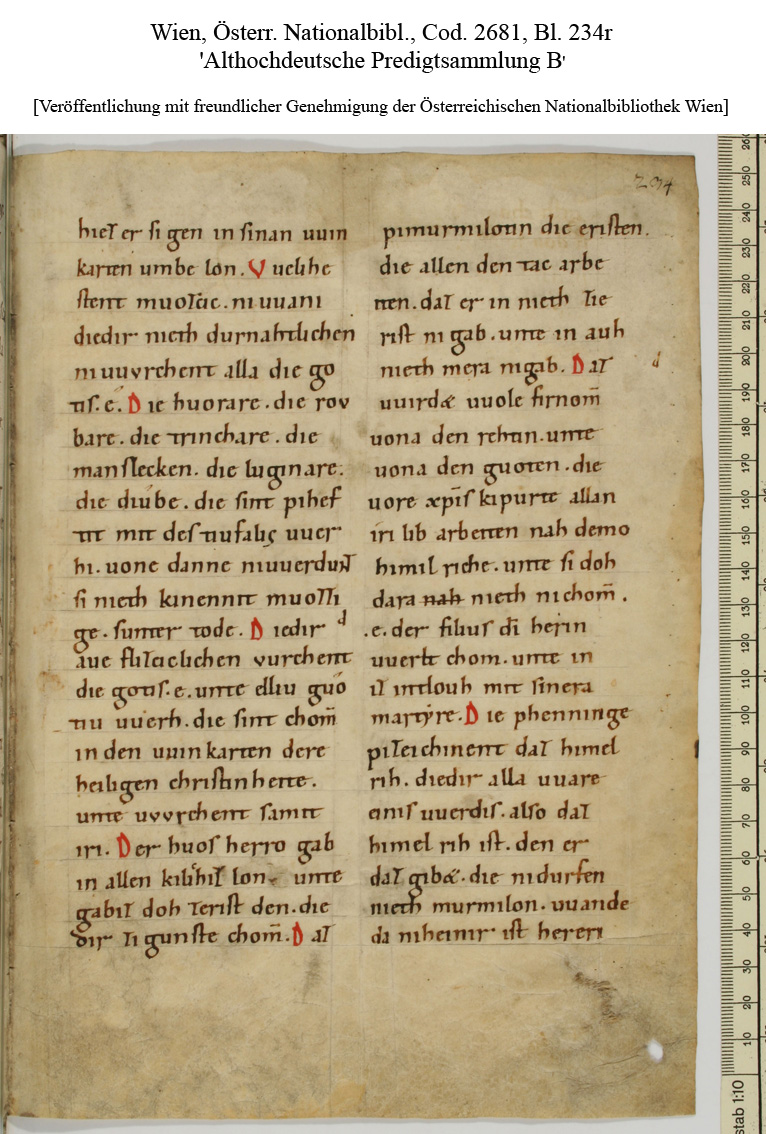 Wien, Österr. Nationalbibl., Cod. 2681, Bl. 234r
'Althochdeutsche Predigtsammlung B'
[Veröffentlichung mit freundlicher Genehmigung der Österreichischen Nationalbibliothek Wien]
234
hiez er si gen in sinan uuin
karten umbe lon. Vuelihe
stent muozic. ni uuani
diedir nieth durnahtlichen
ni uuvrchent alla die go
tis. e. Die huorare. die rou
bare. die trinchare. die
manslecken. die luginare.
die diube. die sint pihef
tit mit des tiufalis uuer
hi. uone danne niuuerdunt
si nieth kinennit muozzi
ge. sunter tode. Diedir
aue flizeclichen vurchent
die gotis. e. unte elliu guo
tiu uuerh. die sint chom̄
in den uuinkarten dere
heiligen christinheite.
unte uvvrchent samit
iri. Der huosherro gab
in allen kilihiz lon. unte
gabiz doh zerist den. die
dir zi gunste chom̄. Daz
pimurmilotin die eristen.
die allen den tac arbe
iten. daz er in nieth zie
rist ni gab. unte in auh
nieth mera nigab. Daz
uuirdet uuole firnom̄
uona den rehtin. unte
uona den guoten. die
uore xp̄is kipurte allan
iri lib arbeiten nah demo
himilriche. unte si doh
dara nah nieth nichom̄.
.e. der filius dī herin
uuerlt chom. unte in
iz intlouh mit sinera
martyre. Die phenninge
pizeichinent daz himel
rih. diedir alla uuare
einis uuerdis. also daz
himelrih ist. den er
daz gibet. die nidurfen
nieth murmilon. uuande
da niheinir ist hereri
260
250
240
230
220
210
200
190
180
170
160
150
140
130
120
110
100
90
80
70
60
50
40
30
20
10
stab 1:10